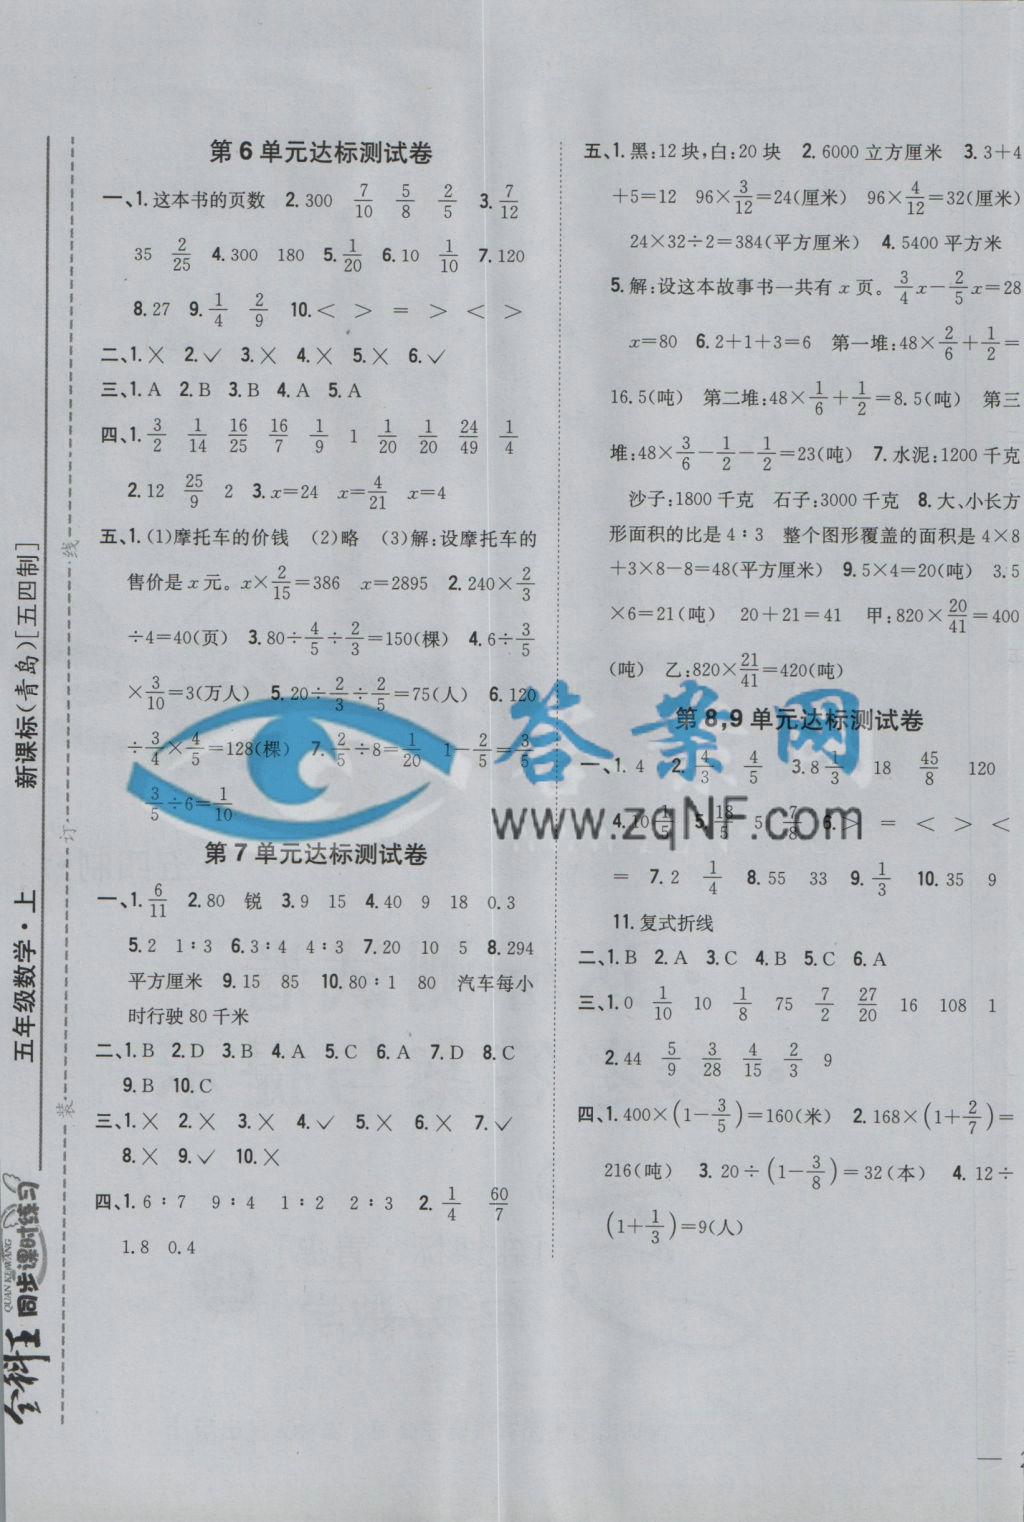 第6单元达标测试卷
一、1.这本书的页数 2.300 7/10 5/8 2/5 3.7/12
35 2/25 4.300 180 5.1/20 6.10 1/10 7.120
8.27 9.1/4 2/9 10.< > = > < >
二、1.× 2.✓ 3.× 4.× 5.× 6.✓
三、1.A 2.B 3.B 4.A 5.A
四、1.3/2 1/14 16/25 16/7 1/9 1 1/20 1/20 24/49 1/4
2.12 25/9 2 3.x=24 x=4/21 x=4
五、1.(1)摩托车的价钱 (2)略 (3)解:设摩托车的
售价是x元。x×2/15=386 x=2895 2.240×2/3
÷4=40(页) 3.80÷4/5÷2/3=150(棵) 4.6÷3/5
×3/10=3(万人) 5.20÷2/3÷2/5=75(人) 6.120
÷3/4×4/5=128(棵) 7.2/5÷8=1/20 1-2/5=3/5
3/5÷6=1/10
第7单元达标测试卷
一、1.6/11 2.80 锐 3.9 15 4.40 9 18 0.3
5.2 1∶3 6.3∶4 4∶3 7.20 10 5 8.294
平方厘米 9.15 85 10.80∶1 80 汽车每小
时行驶80千米
二、1.B 2.D 3.B 4.A 5.C 6.A 7.D 8.C
9.B 10.C
三、1.× 2.× 3.× 4.✓ 5.× 6.× 7.✓
8.× 9.✓ 10.×
四、1.6∶7 9∶4 1∶2 2∶3 2.1/4 60/7
1.8 0.4
五、1.黑:12块,白:20块 2.6000立方厘米 3.3+4
+5=12 96×3/12=24(厘米) 96×4/12=32(厘米)
24×32÷2=384(平方厘米) 4.5400平方米
5.解:设这本故事书一共有x页。3/4x-2/5x=28
x=80 6.2+1+3=6 第一堆:48×2/6+1/2=
16.5(吨) 第二堆:48×1/6+1/2=8.5(吨) 第三
堆:48×3/6-1/2-1/2=23(吨) 7.水泥:1200千克
沙子:1800千克 石子:3000千克 8.大、小长方
形面积的比是4∶3 整个图形覆盖的面积是4×8
+3×8-8=48(平方厘米) 9.5×4=20(吨) 3.5
×6=21(吨) 20+21=41 甲:820×20/41=400
(吨) 乙:820×21/41=420(吨)
第8,9单元达标测试卷
一、1.4 2.4/3 4/5 3.8 1/3 18 45/8 120
4.10 1/5 5.18/5 5 7/8 6.> = < > <
= 7.2 1/4 8.55 33 9.1/3 10.35 9
11.复式折线
二、1.B 2.A 3.C 4.B 5.C 6.A
三、1.0 1/10 10 1/8 75 7/2 27/20 16 108 1
2.44 5/9 3/28 4/15 2/3 9
四、1.400×(1-3/5)=160(米) 2.168×(1+2/7)=
216(吨) 3.20÷(1-3/8)=32(本) 4.12÷
(1+1/3)=9(人)
答案网
www.zqNF.com
新课标(青岛)[五四制]
五年级数学·上
全科王
QUAN KE WANG
同步课时练习
线
订
装